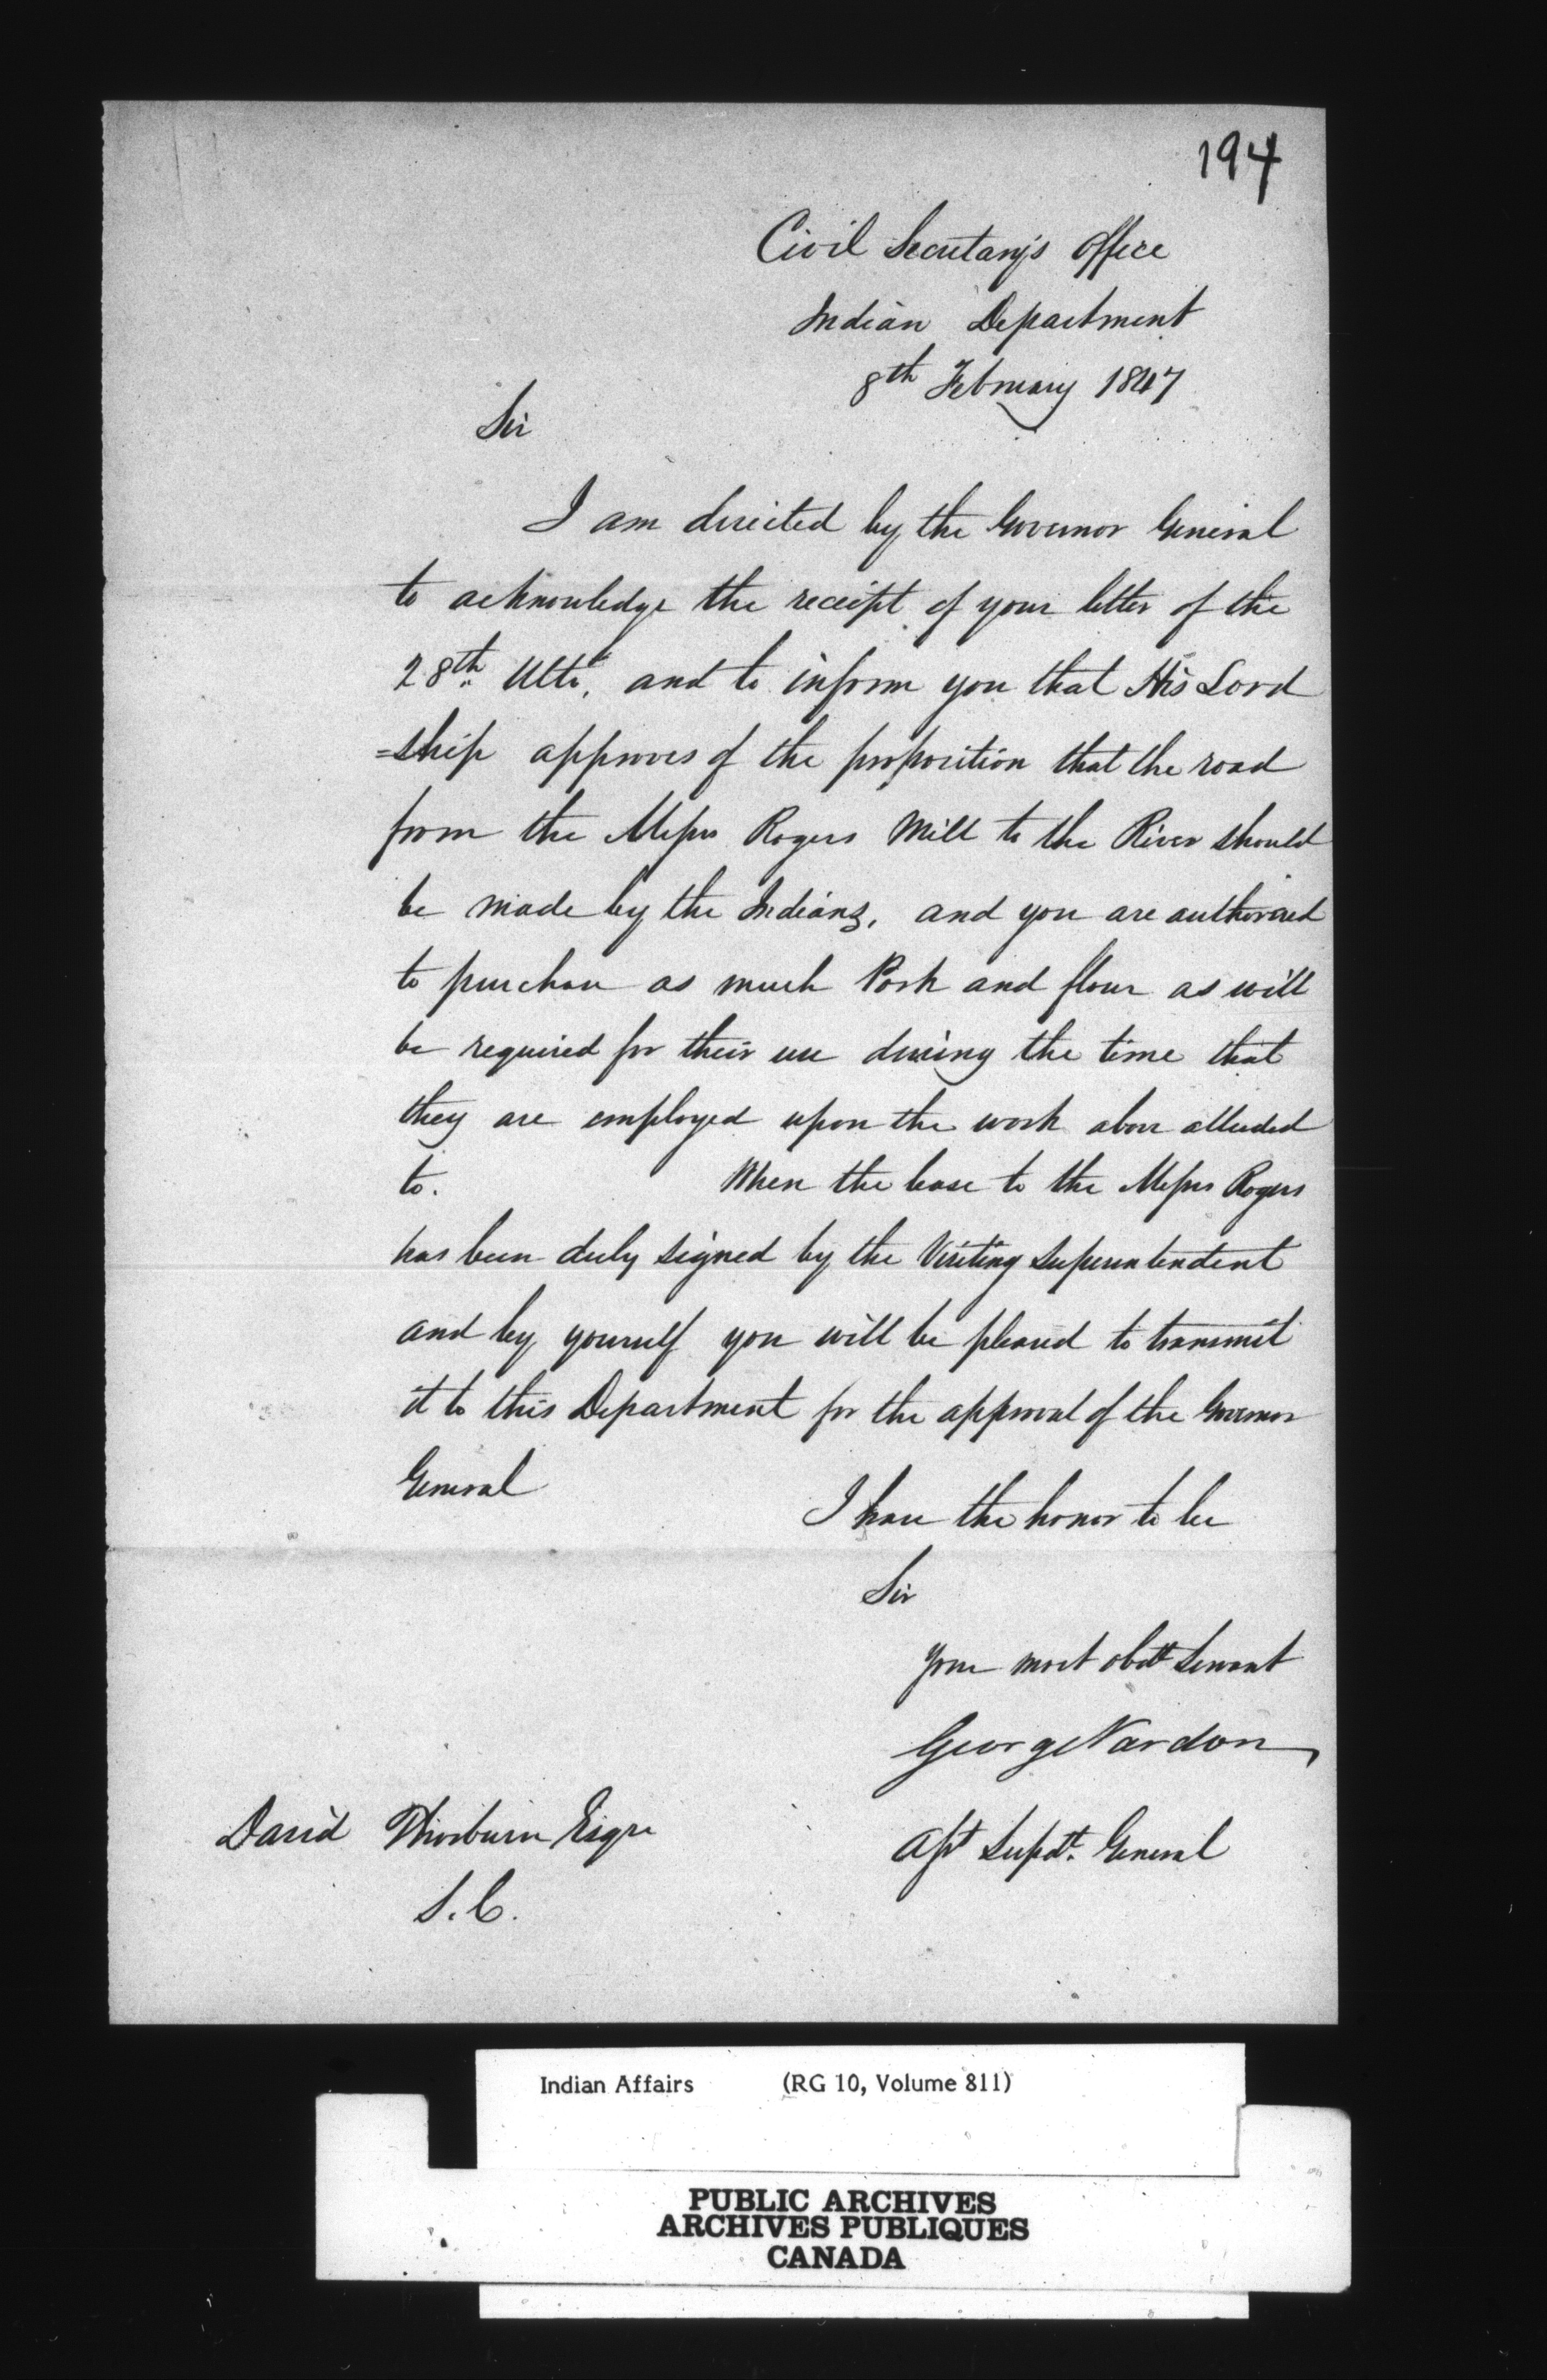 194
Civil Secretary's Office
Indian Department
8th February 1847
Sir
I am directed by the Governor General
to acknowledge the receipt of your letter of the
28th Ulto, and to inform you that His Lord
=ship approves of the proposition that the road
from the Messrs Rogers Mill to the River should
be made by the Indians, and you are authorized
to purchase as much Pork and flour as will
be required for their use during the time that
they are employed upon the work above alluded
to. When the lease to the Messrs Rogers
has been duly signed by the Visiting Superintendent
and by yourself you will be pleased to transmit
it to this Department for the approval of the Governor
General
I have the honor to be
Sir
Your most obdt Servant
George Vardon
Asst Supdt. General
David Thorburn Esqre
S.C.
Indian Affairs (RG 10, Volume 811)
PUBLIC ARCHIVES
ARCHIVES PUBLIQUES
CANADA